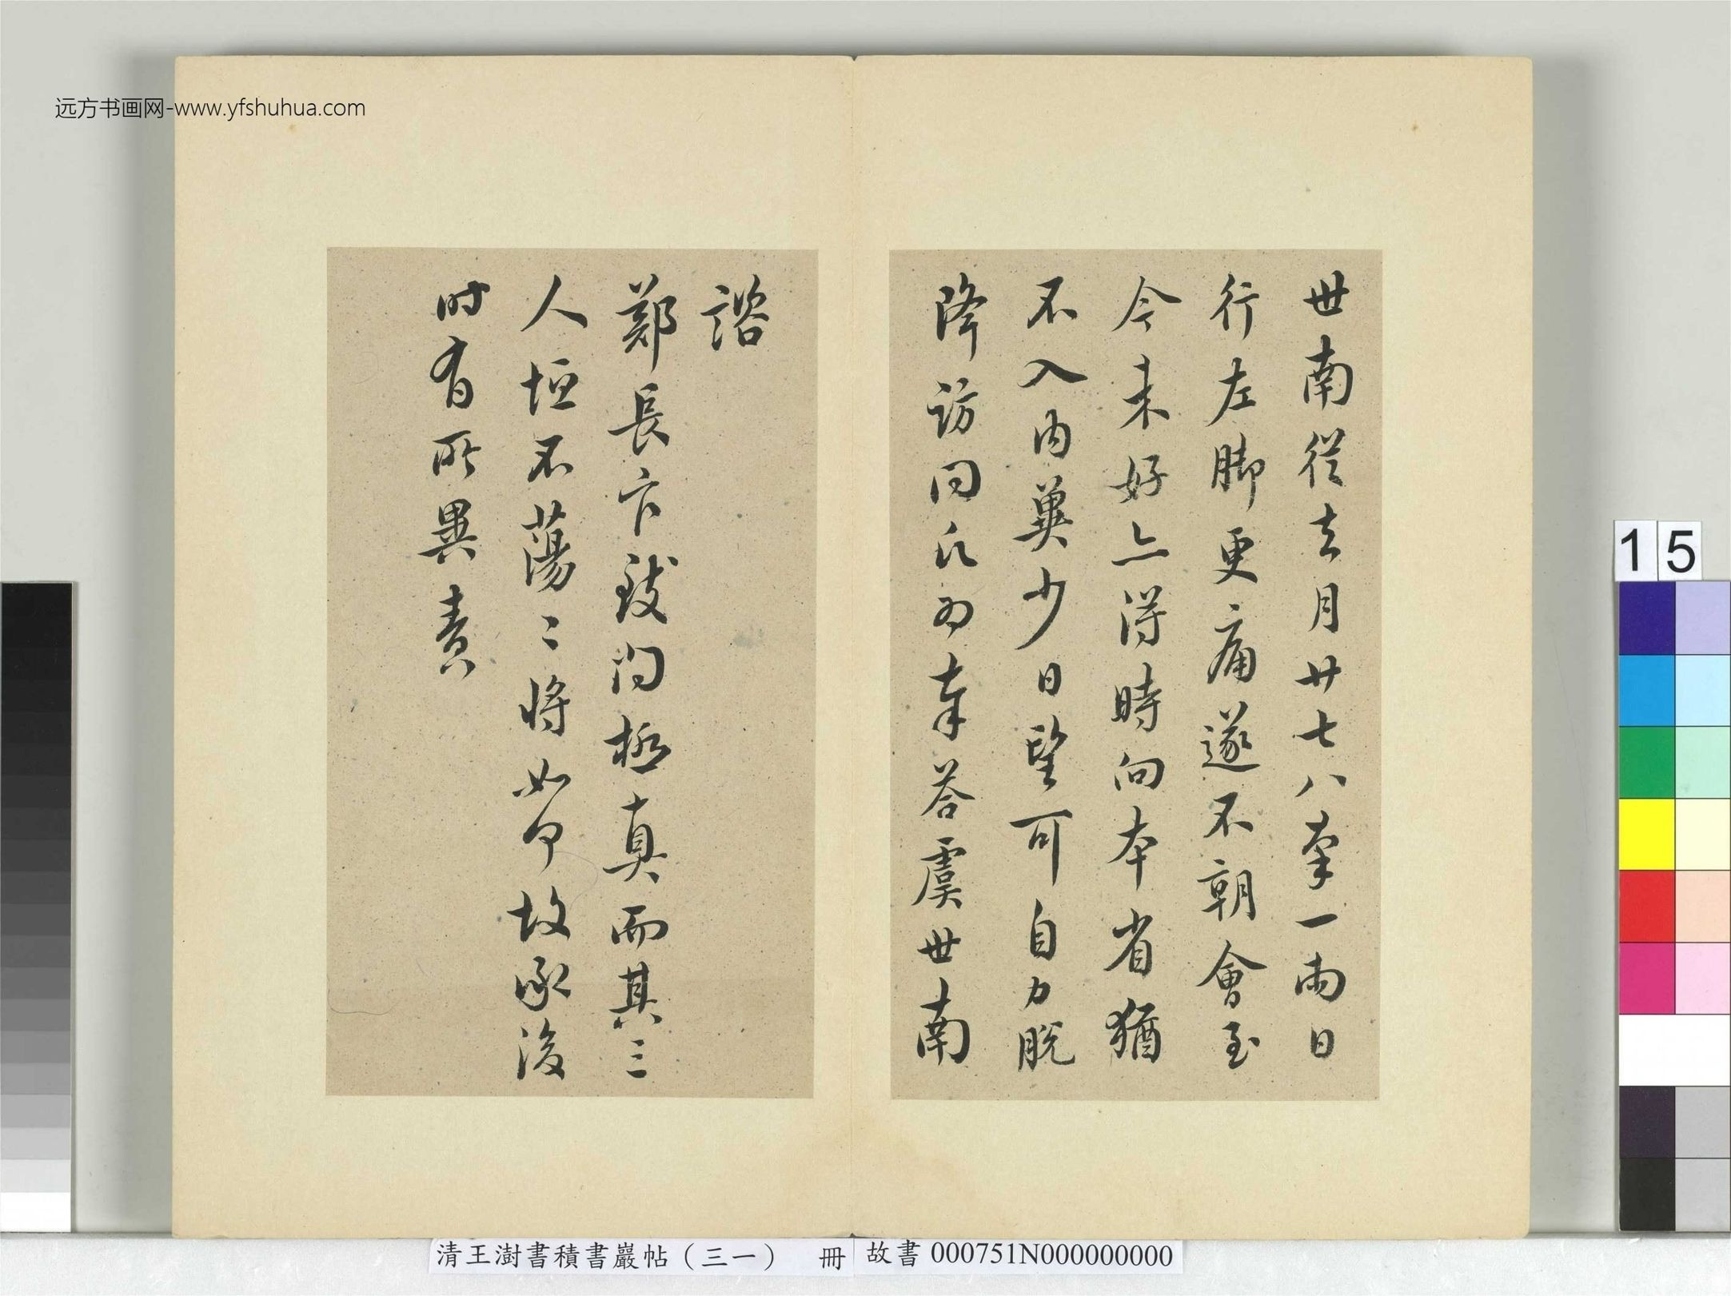 远方书画网-www.yfshuhua.com
世南從去月廿七八率一兩日
行左脚更痛遂不朝會至
今未好亦得時向本省猶
不入內冀少日望可自力脫
降訪問氏為奉荅虞世南
諮
鄭長官致問極真而其三
人恒不蕩〻將如何故承後
時有所異責
15
清王澍書積書巖帖（三一） 冊 故書 000751N000000000